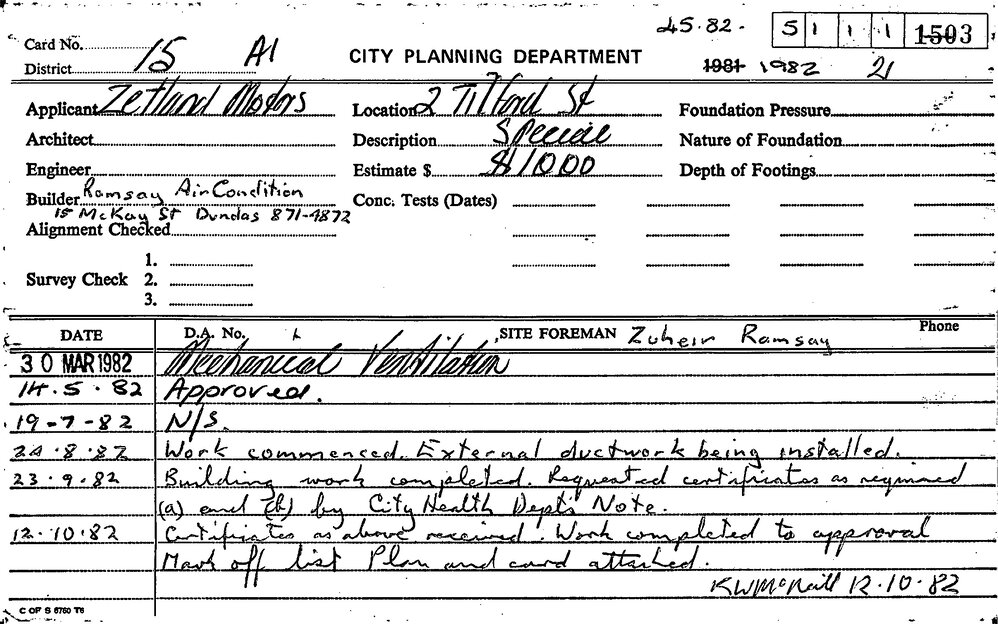 45.82. 5 1 1 1 1503
Card No. 15 A1
District
CITY PLANNING DEPARTMENT
1981 1982 21
Applicant Zetland Motors Location 2 Tilford St Foundation Pressure
Architect Description Special Nature of Foundation
Engineer Estimate $ $1000 Depth of Footings
Builder Ramsay AirCondition Conc. Tests (Dates)
15 McKay St Dundas 871-4872
Alignment Checked
1.
Survey Check 2.
3.
DATE D.A. No. SITE FOREMAN Zuheir Ramsay Phone
30 MAR 1982 Mechanical Ventilation
14.5.82 Approved.
19-7-82 N/S.
24.8.82 Work commenced. External ductwork being installed.
23.9.82 Building work completed. Requested certificates as required
(a) and (b) by City Health Dept's Note.
12.10.82 Certificates as above received. Work completed to approval
Mark off list Plan and card attached.
KWMcNeill 12.10.82
C OF S 6760 T6